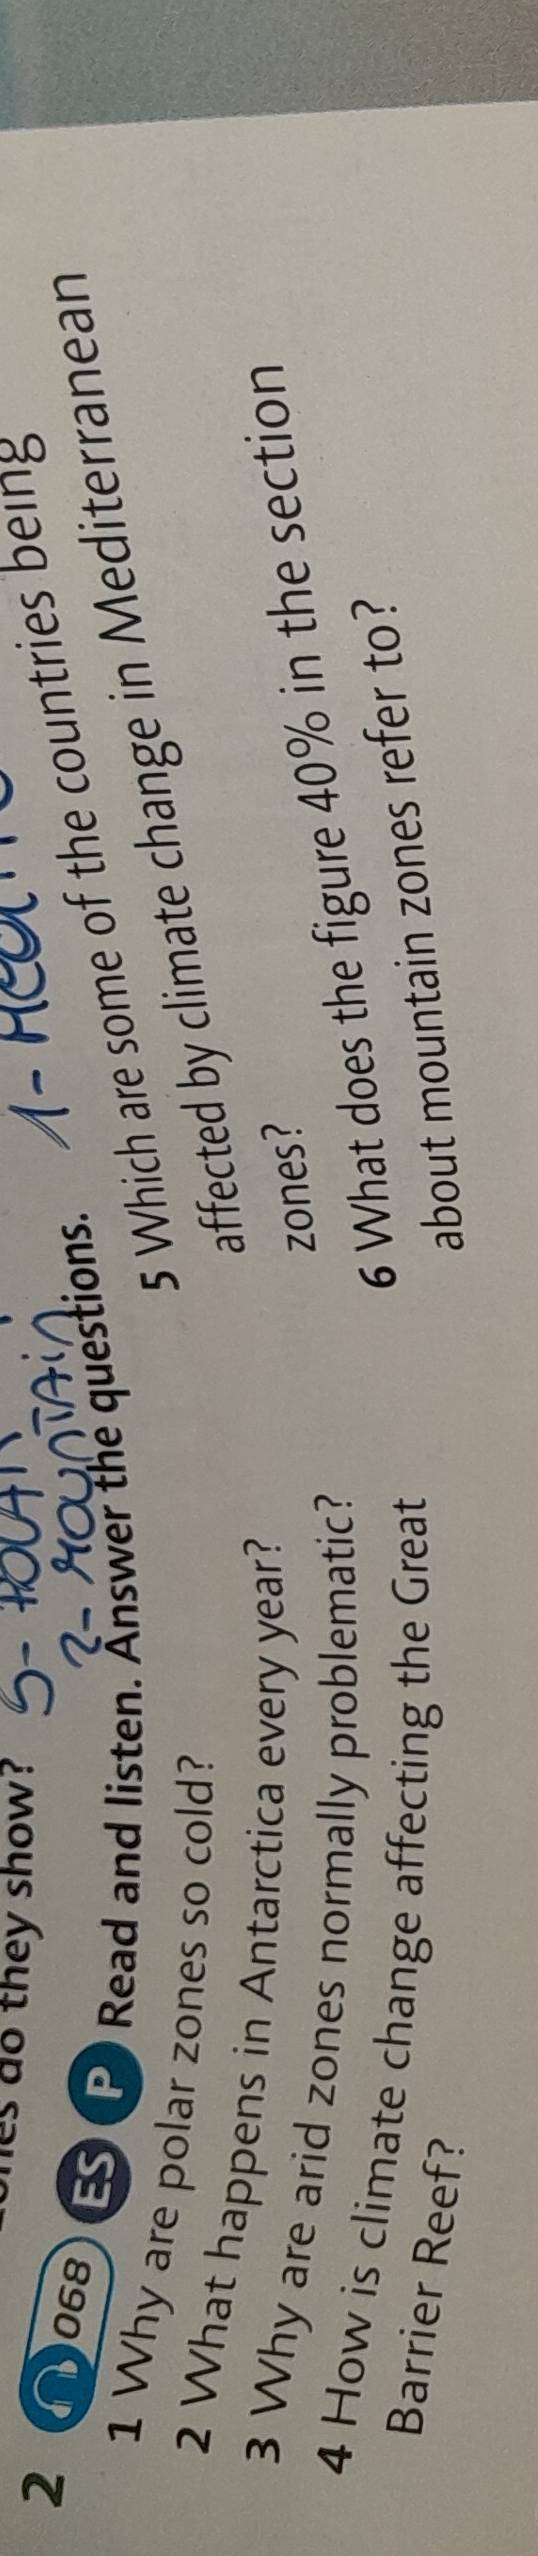 do they show?
5-
2- MOUNTAIN
1-
being
2 068 ES P Read and listen. Answer the questions.
1 Why are polar zones so cold?
2 What happens in Antarctica every year?
3 Why are arid zones normally problematic?
4 How is climate change affecting the Great
Barrier Reef?
5 Which are some of the countries being
affected by climate change in Mediterranean
zones?
6 What does the figure 40% in the section
about mountain zones refer to?